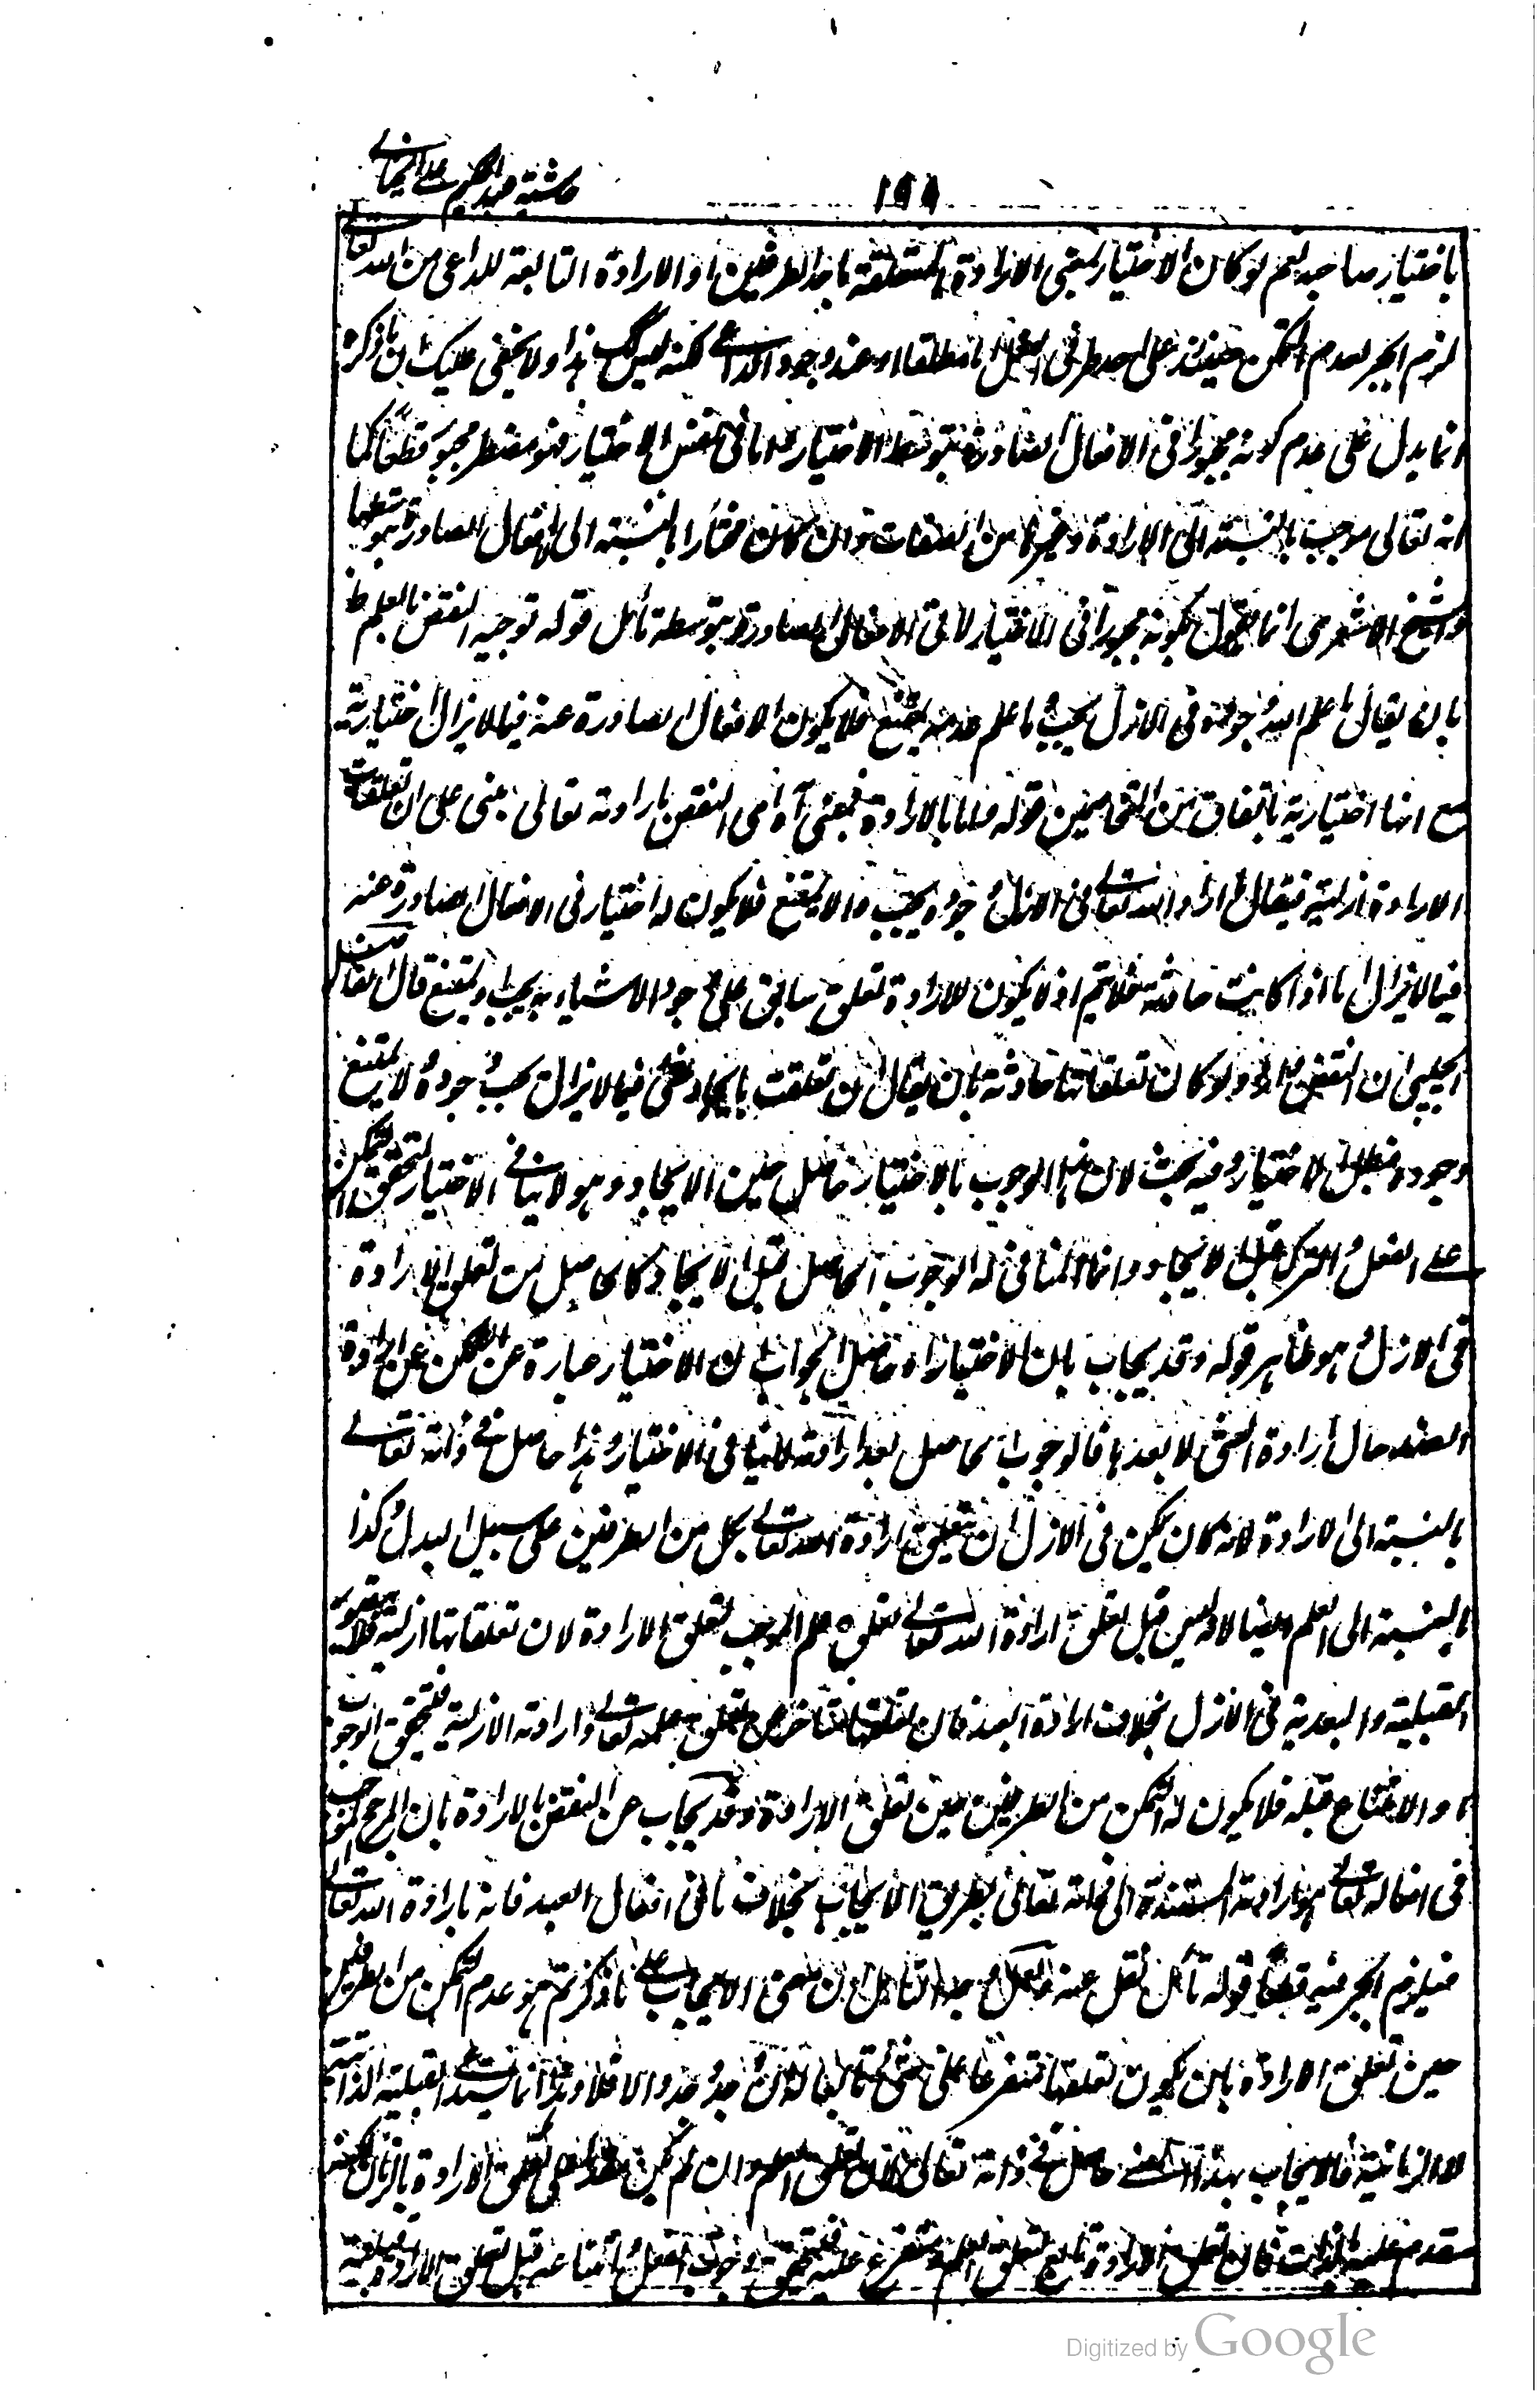 حاشية عبد الحكيم على الخيالي
١٩٨
باختيار صاحبه نعم لو كان الاختيار بمعنى الارادة المتعلقة باحد الطرفين او الارادة التابعة للداعى من الله تعالى
لزم الجبر لعدم التمكن حينئذ على احد طرفى الفعل اما مطلقا او عند وجود الداعى لكنه ليس كك هذا ولا يخفى عليك ان ما ذكره
انما يدل على عدم كونه مجبورا فى الافعال الصادرة بتوسط الاختيار واما فى نفس الاختيار فهو مضطر مجبور قطعًا كما
انه تعالى موجب بالنسبة الى الارادة وغيرها من الصفات وان كان مختارا بالنسبة الى الافعال الصادرة بتوسطها
والشيخ الاشعرى انما يقول بكونه مجبورا فى الاختيار لا فى الافعال الصادرة بتوسطه تأمل قوله توجيه النقض بالعلم ظ
بان يقال ما علم الله وجوده فى الازل يجب وما علم عدمه يمتنع فلا يكون الافعال الصادرة عنه فيما لا يزال اختيارية
مع انها اختيارية باتفاق من المتخاصمين قوله واما بالارادة فمبنى آه اى النقض بارادته تعالى مبنى على ان تعلقات
الارادة ازلية فيقال ما اراد الله تعالى فى الازل وجوده يجب والا يمتنع فلا يكون له اختيار فى الافعال الصادرة عنه
فيما لا يزال اما اذا كانت حادثة فلا يتم اذ لا يكون للارادة تعلق سابق على وجود الاشياء به يجب ويمتنع قال الفاضل
الجلبى ان النقض وارد ولو كان تعلقاتها حادثة بان يقال ان تعلقت بايجاد شئ فيما لا يزال يجب وجوده والا يمتنع
وجوده فبطل الاختيار وفيه بحث لان هذا الوجوب بالاختيار حاصل حين الايجاد وهو لا ينافى الاختيار لتحقق التمكن
على الفعل والترك قبل الايجاد وانما المنافى له الوجوب الحاصل قبل الايجاد كالحاصل من تعلق الارادة
فى الازل وهو ظاهر قوله وقد يجاب بان الاختيار اه حاصل الجواب ان الاختيار عبارة عن التمكن عن ارادة
الضد حال ارادة الشئ لا بعدها فالوجوب الحاصل بعد ارادته لا ينافى الاختيار وهذا حاصل فى ذاته تعالى
بالنسبة الى الارادة لانه كان يمكن فى الازل ان يتعلق ارادة الله تعالى بكل من الطرفين على سبيل البدل وكذا
بالنسبة الى العلم ايضا لانه ليس قبل تعلق ارادة الله تعالى تعلق علم الموجب لتعلق الارادة لان تعلقاتها ازلية فلا يتصور
القبلية والبعدية فى الازل بخلاف ارادة العبد فان تعلقها متأخر عن تعلق علمه تعالى وارادته الازلية فيتحقق الوجوب
او الامتناع قبله فلا يكون له التمكن من الطرفين حين تعلق الارادة وقد يجاب عن النقض بالارادة بان المرجح الموجب
فى افعاله تعالى هو ارادته المستندة الى ذاته تعالى بطريق الايجاب بخلاف ما فى افعال العبد فانه بارادة الله تعالى
فيلزم الجبر فيه قطعًا قوله تأمل نقل عنه لعل وجه التأمل ان معنى الايجاب على ما ذكرتم هو عدم التمكن من الطرفين
حين تعلق الارادة بان يكون تعلقها متفرعا على شئ تابعا له ان وجد وجد والا فلا وهذا انما يستدعى القبلية الذاتية
لا الزمانية فالايجاب بهذا المعنى حاصل فى ذاته تعالى لان تعلق العلم وان لم يكن مقدما على تعلق الارادة بالزمان لكنه
مقدم عليه بالذات فان تعلق الارادة تابع لتعلق العلم ومتفرع عليه فيتحقق وجوب الفعل وامتناعه قبل تعلق الارادة
Digitized by Google